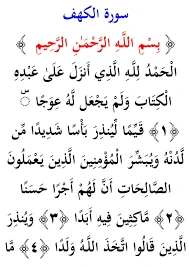 سورة الكهف
﴿ بِسْمِ اللَّهِ الرَّحْمَٰنِ الرَّحِيمِ ﴾
الْحَمْدُ لِلَّهِ الَّذِي أَنزَلَ عَلَىٰ عَبْدِهِ
الْكِتَابَ وَلَمْ يَجْعَل لَّهُ عِوَجًا ۜ
﴿١﴾ قَيِّمًا لِّيُنذِرَ بَأْسًا شَدِيدًا مِّن
لَّدُنْهُ وَيُبَشِّرَ الْمُؤْمِنِينَ الَّذِينَ يَعْمَلُونَ
الصَّالِحَاتِ أَنَّ لَهُمْ أَجْرًا حَسَنًا
﴿٢﴾ مَّاكِثِينَ فِيهِ أَبَدًا ﴿٣﴾ وَيُنذِرَ
الَّذِينَ قَالُوا اتَّخَذَ اللَّهُ وَلَدًا ﴿٤﴾ مَّا